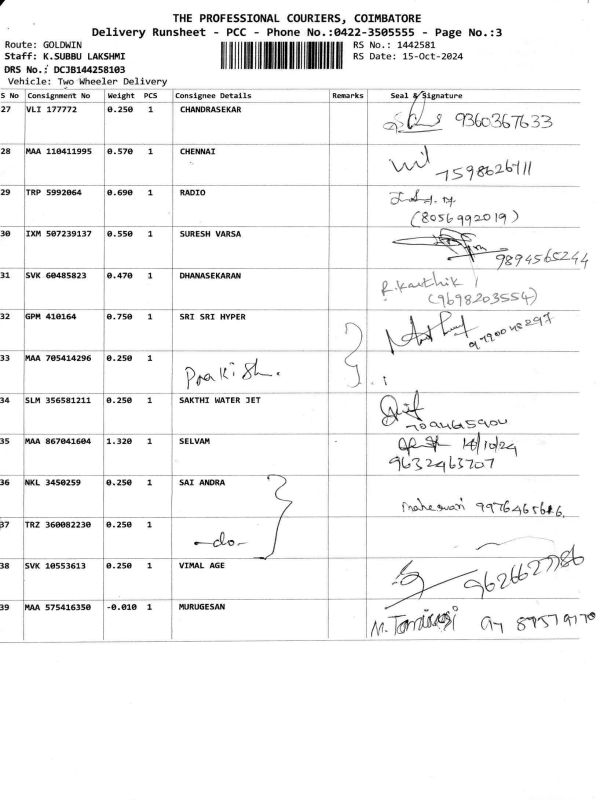 THE PROFESSIONAL COURIERS, COIMBATORE
Delivery Runsheet - PCC - Phone No.:0422-3505555 - Page No.:3
Route: GOLDWIN RS No.: 1442581
Staff: K.SUBBU LAKSHMI RS Date: 15-Oct-2024
DRS No.: DCJB144258103
Vehicle: Two Wheeler Delivery
S No Consignment No Weight PCS Consignee Details Remarks Seal & Signature
27 VLI 177772 0.250 1 CHANDRASEKAR
9360367633
28 MAA 110411995 0.570 1 CHENNAI
7598626711
29 TRP 5992064 0.690 1 RADIO
(8056992019)
30 IXM 507239137 0.550 1 SURESH VARSA
9894565244
31 SVK 60485823 0.470 1 DHANASEKARAN
R.Karthik
(9698203554)
32 GPM 410164 0.750 1 SRI SRI HYPER
33 MAA 705414296 0.250 1
Prakish.
34 SLM 356581211 0.250 1 SAKTHI WATER JET
35 MAA 867041604 1.320 1 SELVAM
14/10/24
9632463707
36 NKL 3450259 0.250 1 SAI ANDRA
Maheswari
37 TRZ 360082230 0.250 1
-do-
38 SVK 10553613 0.250 1 VIMAL AGE
39 MAA 575416350 -0.010 1 MURUGESAN